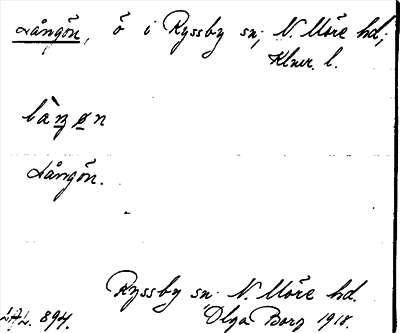 Långön, ö i Ryssby sn, N. Möre hd,
Klmr. l.
Långön.
Ryssby sn. N. Möre hd.
894. Olga Borg 1918.